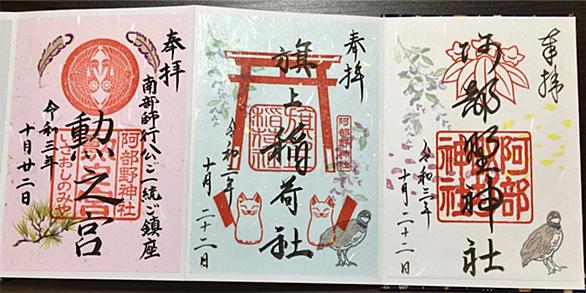 奉拝
阿部野神社
阿部野神社
令和三年
十月二十二日
奉拝
旗上稲荷社
旗上稲荷社
阿部野神社
令和三年
十月二十二日
奉拝
南部師行公ご一統ご鎮座
勲之宮
阿部野神社
勲之宮
いさおしのみや
令和三年
十月廿二日